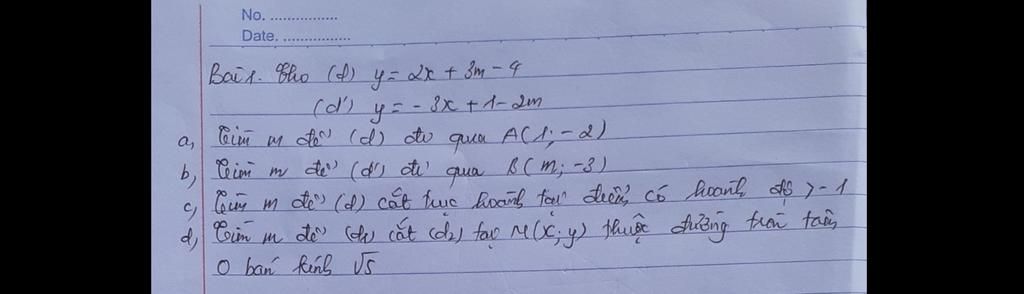 No. ................
Date. ................
Bài 1. Cho (d) y = 2x + 3m - 4
(d') y = - 3x + 1 - 2m
a, Tìm m để (d) đi qua A(1; -2)
b, Tìm m để (d') đi qua B(m; -3)
c, Tìm m để (d) cắt trục hoành tại điểm có hoành độ > -1
d, Tìm m để (d₁) cắt (d₂) tại M(x; y) thuộc đường tròn tâm
O bán kính √5